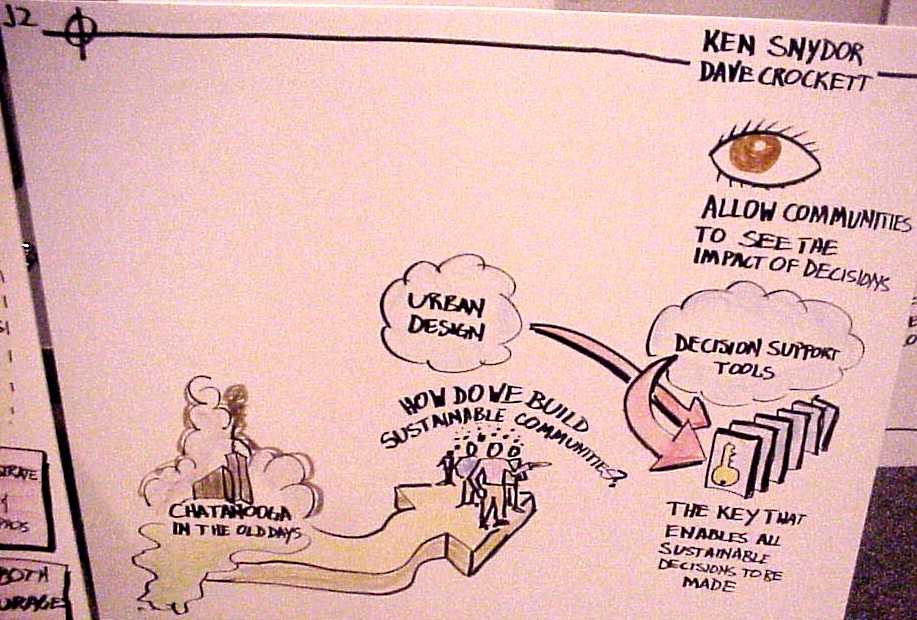 J2
KEN SNYDOR
DAVE CROCKETT
ALLOW COMMUNITIES
TO SEE THE
IMPACT OF DECISIONS
URBAN
DESIGN
DECISION SUPPORT
TOOLS
HOW DO WE BUILD
SUSTAINABLE COMMUNITIES?
CHATANOOGA
IN THE OLD DAYS
THE KEY THAT
ENABLES ALL
SUSTAINABLE
DECISIONS TO BE
MADE
BOTH